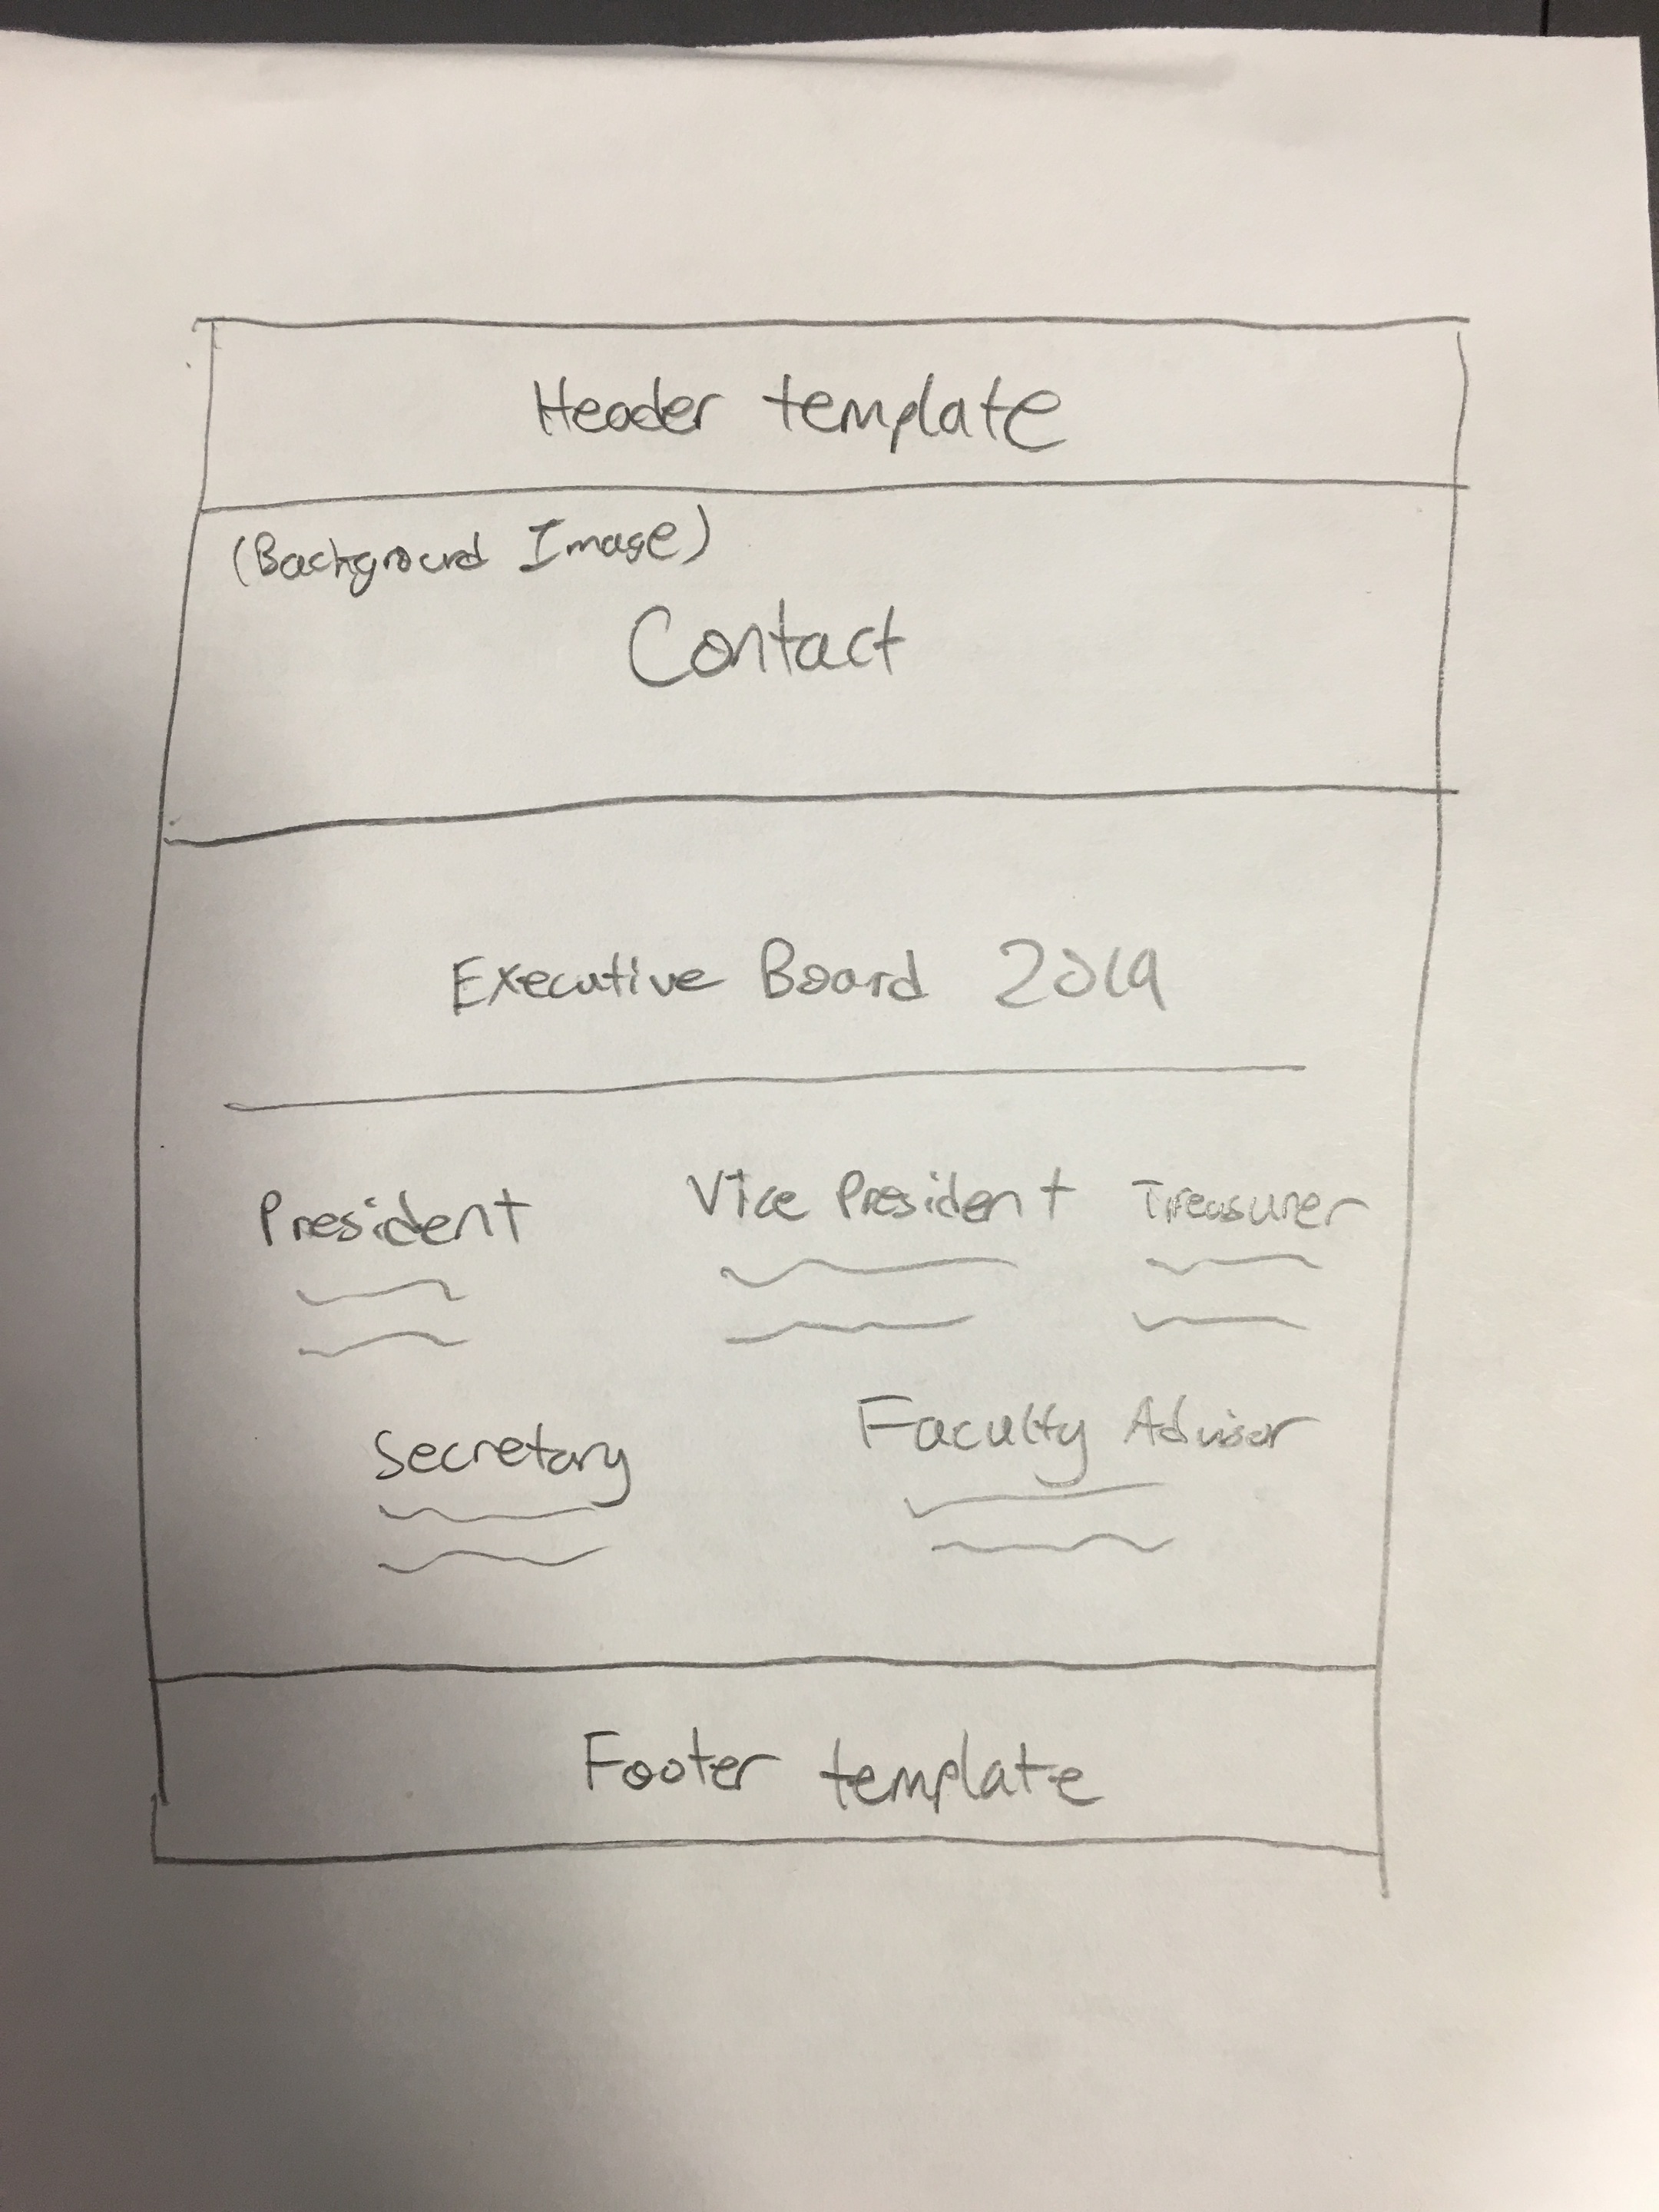 Header template
(Background Image)
Contact
Executive Board 2019
President Vice President Treasurer
Secretary Faculty Advisor
Footer template